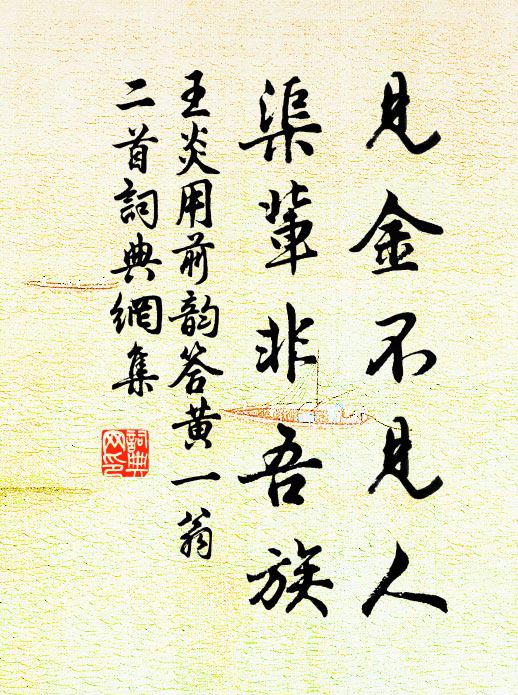 見金不見人
渠輩非吾族
王炎用前韵答黄一翁
二首詞典網集
詞典網印